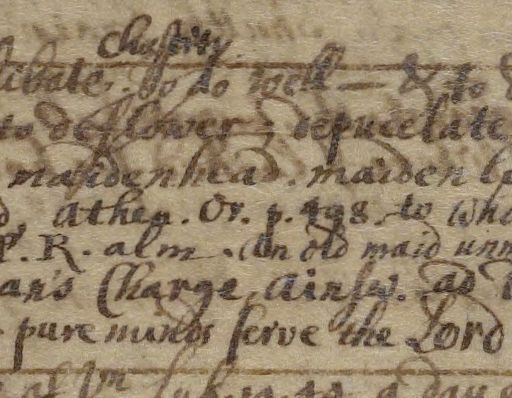 chastity
libate. do do well — & to
to deflower, depucelate
maidenhead. maiden
Athen. Or. p. 498. to who
P. R. alm. An old maid unm
an's Charge. Ainsw. ad
pure minds serve the Lord